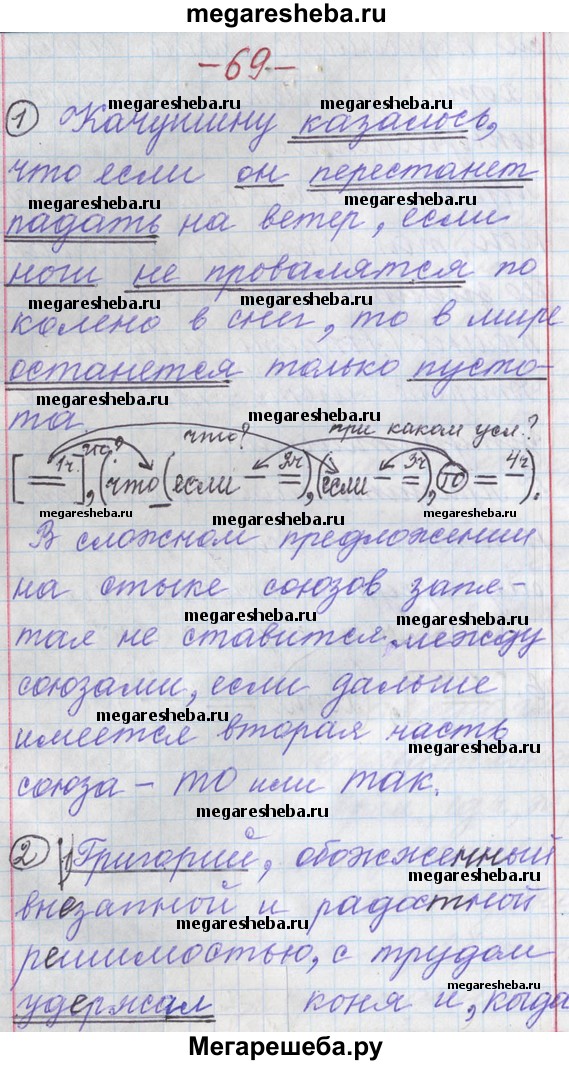 megaresheba.ru
-69-
megaresheba.ru megaresheba.ru
① Качушину казалось,
что если он перестанет
megaresheba.ru megaresheba.ru
падать на ветер, если
ноги не провалятся по
megaresheba.ru megaresheba.ru
колено в снег, то в мире
останется только пусто-
megaresheba.ru megaresheba.ru
та.
что? что? при каком усл.?
[= 1ч.], (что (если – = 2ч), (если – = 3ч), то = – 4ч).
В сложном предложении
на стыке союзов запя-
megaresheba.ru
тая не ставится между
megaresheba.ru
союзами, если дальше
megaresheba.ru
имеется вторая часть
союза – то или так.
megaresheba.ru
② |1 Григорий, обожженный
megaresheba.ru
внезапной и радостной
megaresheba.ru
решимостью, с трудом
megaresheba.ru
удержал коня и, когда
megaresheba.ru
Мегарешеба.ру